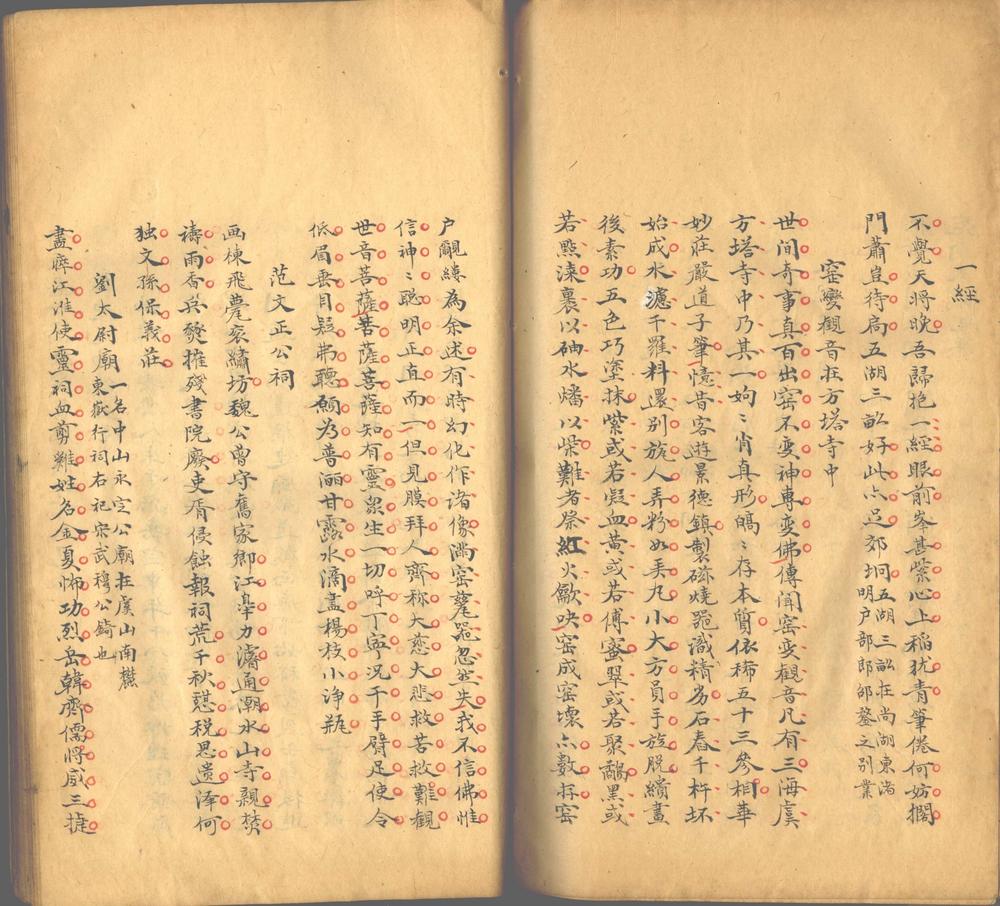 一經
不覺天將晚吾歸抱一經眼前峯甚紫心上稲犹青筆倦何妨擱
門蕭豈待扃五湖三畝好此亦足郊坰五湖三畝在尚湖東滸明户部郎邹鍳之别業
窑變觀音在方塔寺中
世间奇事真百出窑不变神専变佛傳闻窑变觀音凡有三海虞
方塔寺中乃其一姁〻肖真形皜〻存本質依稀五十三參相華
妙莊嚴道子筆憶昔客遊景德鎮製磁燒器識精㐹石舂千杵坯
始成水濾千羅料還别旋人弄粉如弄丸小大方員手旋脱繢畫
後素功五色巧塗抹紫或若㱔血黄或若傅蜜翠或若聚鷸黑或
若㸃漆裹以硇水燔以柴難者祭紅火歙吷窑成窑壞亦數存窑
户覼縷為余述有時幻化作诸像滿窑甆器忽然失我不信佛惟
信神〻聡明正直而一但見膜拜人齊称大慈大悲救苦救難觀
世音菩薩菩薩菩薩知有靈衆生一切呼丁寕况千手臂足使令
低眉垂目疑弗聽願为普丽甘露水滴盡楊枝小浄瓶
范文正公祠
画棟飛甍袞繡坊魏公曾守舊家鄉江皋力濬通潮水山寺親焚
禱雨香兵燹摧殘書院廢吏胥侵蝕報祠荒千秋諶税思遗泽何
独文孫保義莊
劉太尉廟一名中山永定公廟在虞山南麓東嶽行祠右祀宋武穆公錡也
盡瘁江淮使靈祠血剪難姓名金夏怖功烈岳韓齊儒將威三捷